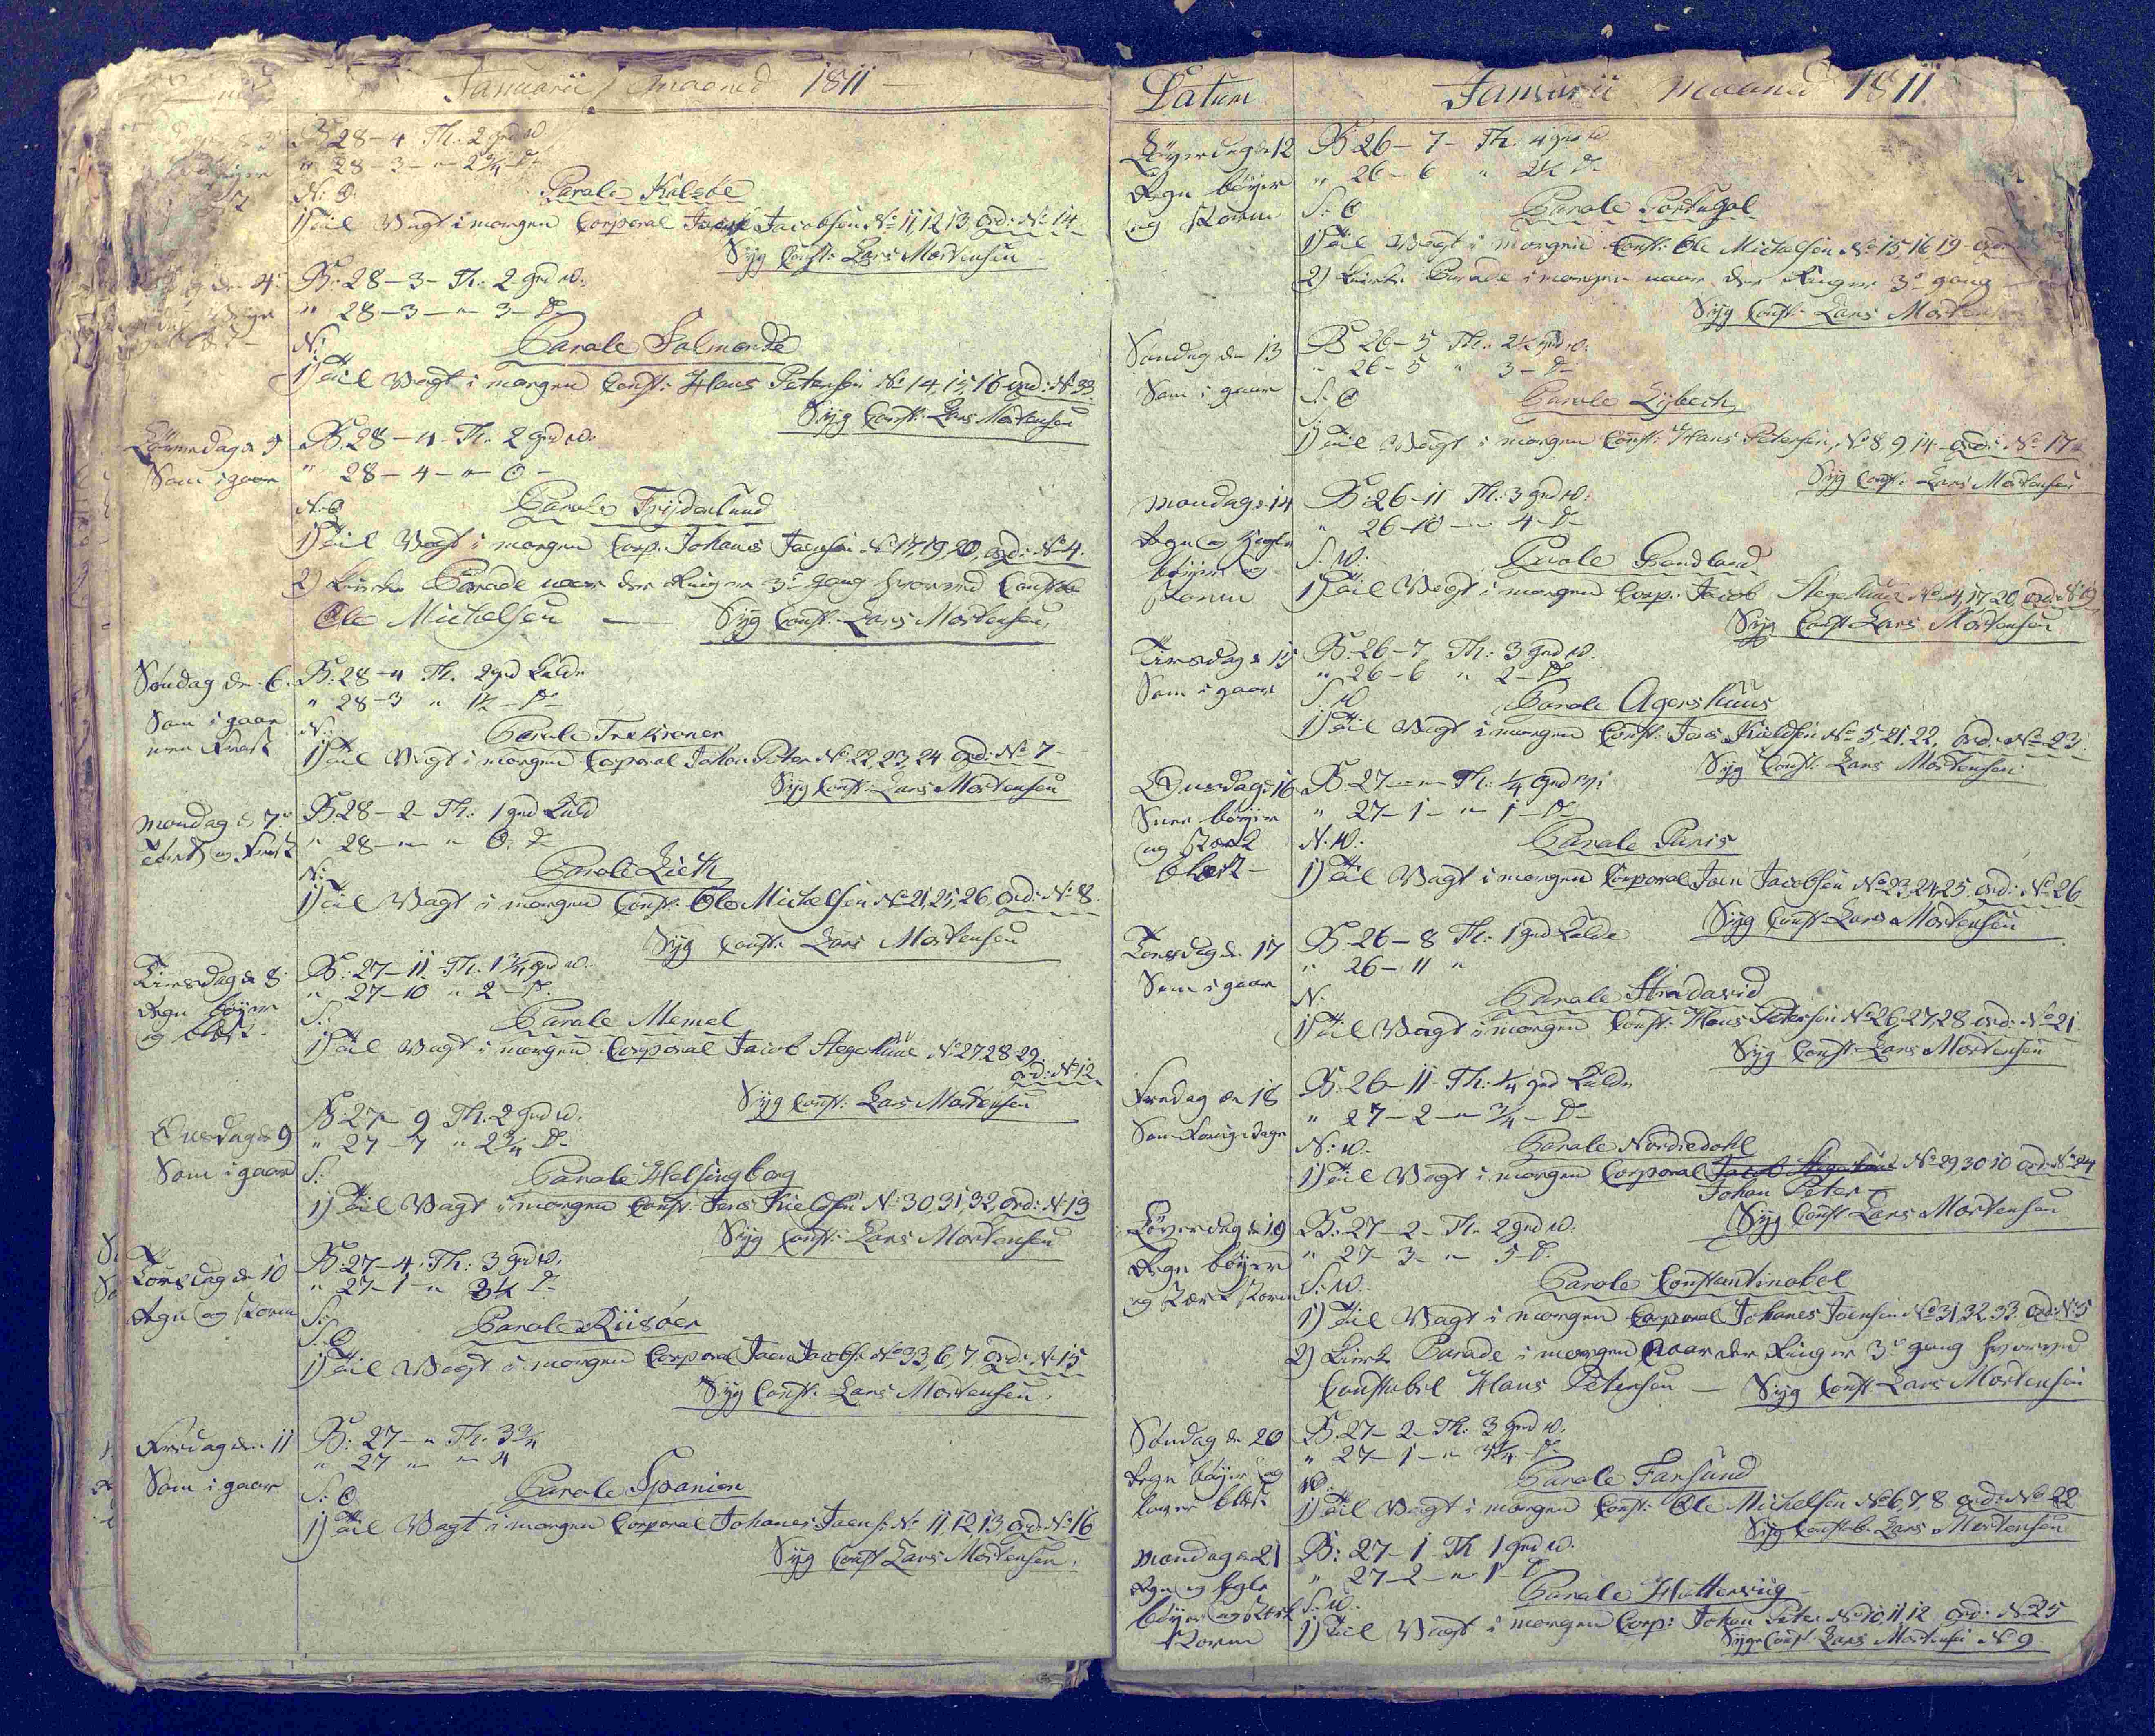 Januarii maaned 1811
B. 28-4 Th. 2 grd W.
" 28-3-"- 2¾ D
N. O.
Parole
1) Til Vagt i morgen Corporal Jacobsen No 11, 12, 13, Ord: No 14
Syg Const: Lars Mortensen
4
B. 28-3- Th. 2 grd W.
" 28-3-"- 3- D
N.
Parole
1) Til Vagt i morgen Const: Hans Petersen No 14, 15, 16 Ord: No 33
Syg Const: Lars Mortensen
Löverdag d 5
Som i gaar
B. 28-4- Th. 2 grd W.
" 28-4-"- 0-
N. O
Parole
1) Til Vagt i morgen Corp. Johanes Jaensen No 17, 19, 20, Ord: No 4.
2) Kirke Parade naar der Ringer 3de gang hvorved Constb
Ole Michelsen — Syg Const: Lars Mortensen
Søndag den 6.
Som i gaar
men Frost
B. 28-4 Th. 2 grd Kulde
" 28-3 " 1½- D
N.
Parole Trekroner
1) Til Vagt i morgen Corporal Johan Peter No 22, 23, 24 Ord: No 7
Syg Const: Lars Mortensen
Mandag d 7de
og Frost
B. 28-2- Th. 1 grd Kuld
" 28-"-" 0. D
N:
Parole Lieth
1) Til Vagt i morgen Const: Ole Michelsen No 21, 25, 26, Ord: No 8.
Syg Const: Lars Mortensen
Tirsdag d 8
Regn böyer
og blæst.
B: 27-11- Th. 1¾ grd W.
" 27-10 " 2- D.
S.
Parole Memel
1) Til Vagt i morgen Corporal Jacob Stegerhuus No 27 28 29.
Ord: No 12
Syg Const: Lars Mortensen
Onsdag d 9
Som i gaar
B. 27-9 Th. 2 grd W.
" 27-7 " 2¾ D
S.
Parole Helsingborg
1) Til Vagt i morgen Const. Jens Kieldsen No 30, 31, 32, Ord: No 13
Syg Const: Lars Mortensen
Torsdag d 10
Regn og Storm
B. 27-4. Th: 3 grd W.
" 27-1-" 3¼ D
S.
S. O
Parole Riisöer
1) Til Vagt i morgen Corporal Jaen Jacobs: No 33, 6, 7, Ord: No 15
Syg Const: Lars Mortensen.
Fredag den 11
Som i gaar
B: 27-" Th. 3¾
" 27 " -" 4
S. O
Parole Spanien
1) Til Vagt i morgen Corporal Johanes Jaens: No 11, 12 13, Ord: No 16
Syg Const Lars Mortensen.
Datum
Januarii Maaned 1811
Löverdag d 12
Regn böyer
og Storm
B 26-7- Th. 4 grd W
" 26-6 " 2½ D
S: O
Parole Portugal
1) Til Vagt i morgen Const: Ole Michelsen No 15, 16 19- Ord
2) Kirke Parade i morgen naar der Ringer 3de gang
Syg Const: Lars Morten
Søndag den 13
Som i gaar
B 26-5 Th. 2½ grd W.
" 26-5 " 3- D
S. O
Parole Lybech
1) Til Vagt i morgen Const: Hans Petersen, No 8 9 14- Ord: No 17
Syg Const: Lars Mortensen
Mandag d 14
Regn og Hagle
böyer og
Storm
B: 26-11 Th.: 3 grd W:
" 26-10-" 4- D
S. W.
Parole Grendland
1) Til Vagt i morgen Corp: Jacob Stegerhuus No 4, 17, 20, Ord: No 19
Syg Const Lars Mortensen
Tirsdag d 15
Som i gaar
B. 26-7 Th: 3 grd W.
" 26-6 " 2- D
S W
Parole Agershuus
1) Til Vagt i morgen Const: Jens Kieldsen No 5, 21, 22, Ord: No 23
Syg Const: Lars Mortensen
Onsdag d 16
Snee böyer
og Stærk
blæst-
B. 27-"-" Th: ¼ grd W:
" 27-1-" 1- D
N. W.
Parole Paris
1) Til Vagt i morgen Corporal Jaen Jacobsen No 23, 24, 25 Ord: No 26
Syg Const Lars Mortensen
Torsdag d. 17
Som i gaar
B. 26-8 Th: 1 grd Kulde
" 26-11 "
N.
Parole
1) Til Vagt i morgen Const: Hans Petersen No 26, 27, 28 Ord: No 21
Syg Const Lars Mortensen
Fredag den 18
Som Forige dage
B: 26-11 Th: ¼ grd Kulde
" 27-2-" ¾- D
N: W.
Parole Nordredahl
1) Til Vagt i morgen Corporal Jacob Stegerhuus No 29 30 10 Ord: No 24
Johan Peter
Syg Const Lars Mortensen
Löverdag d 19
Regn böyer
og Stærk Storm
B: 27-2- Th. 2 grd W.
" 27-3-" 5- D.
S. W.
Parole Constantinobel
1) Til Vagt i morgen Corporal Johanes Jaensen No 31, 32, 33, Ord: No 5
2) Kirke Parade i morgen naar der Ringer 3de gang hvorved
Constabel Hans Petersen — Syg Const Lars Mortensen
Søndag d 20
Regn böyer og
blæst
B. 27-2- Th. 3 grd W.
" 27-1-" D
W.
Parole Farsund
1) Til Vagt i morgen Const: Ole Michelsen No 6, 7, 8 Ord: No 22
Syg Constab: Lars Mortensen
Mandag d 21
Regn og Hagle
böyer og Stærk
Storm
B: 27-1 Th 1 grd W.
" 27-2-" 1- D
S. W.
Parole
1) Til Vagt i morgen Corp: Johan Peter No 10, 11, 12 Ord: No 25
Syge Const Lars Mortensen No 9